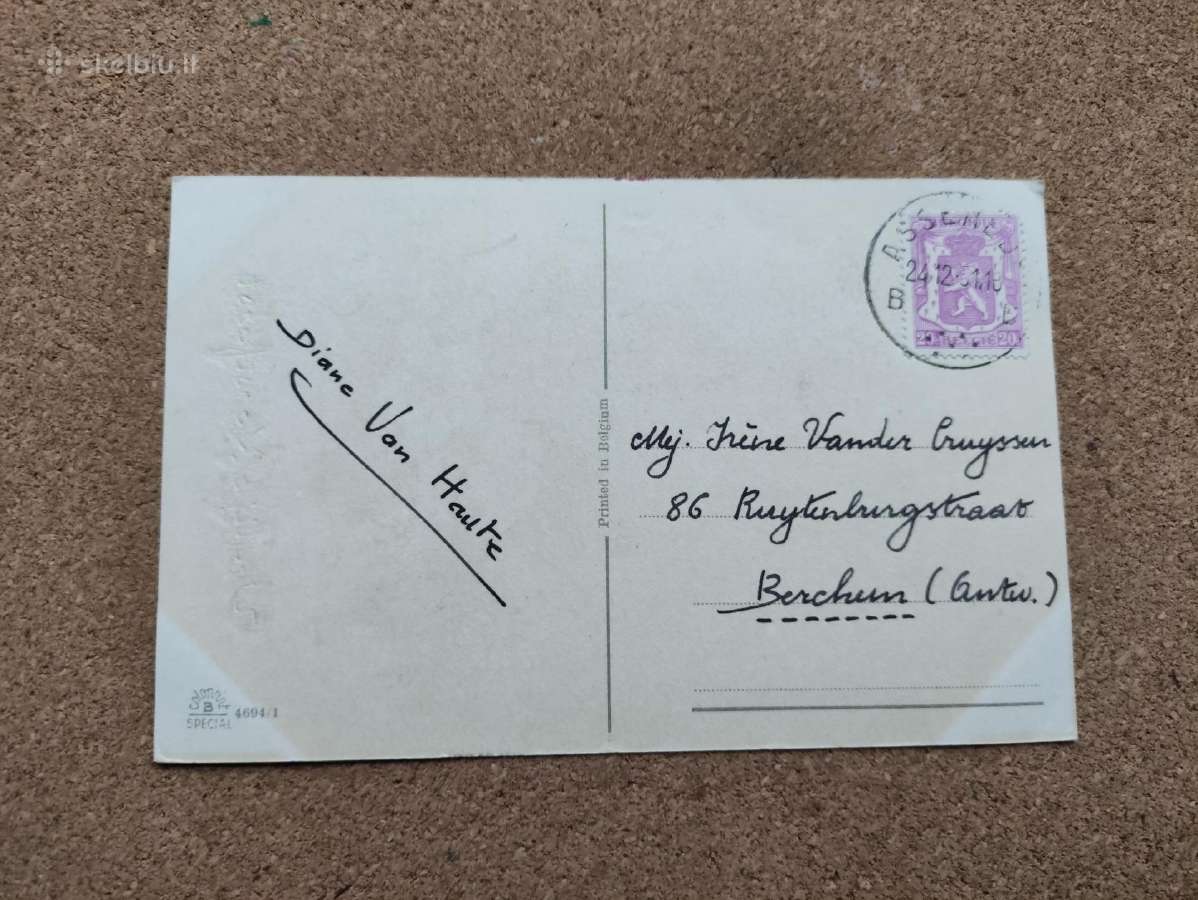 skelbiu.lt
ASSENEDE
B
24.12.51.1
20 BELGIE 20
Diane Van Haute
Printed in Belgium
Mej. Irène Vander Cruyssen
86 Ruytenburgstraat
Berchem (Antw.)
COLORPRINT
B
SPECIAL
4694/1